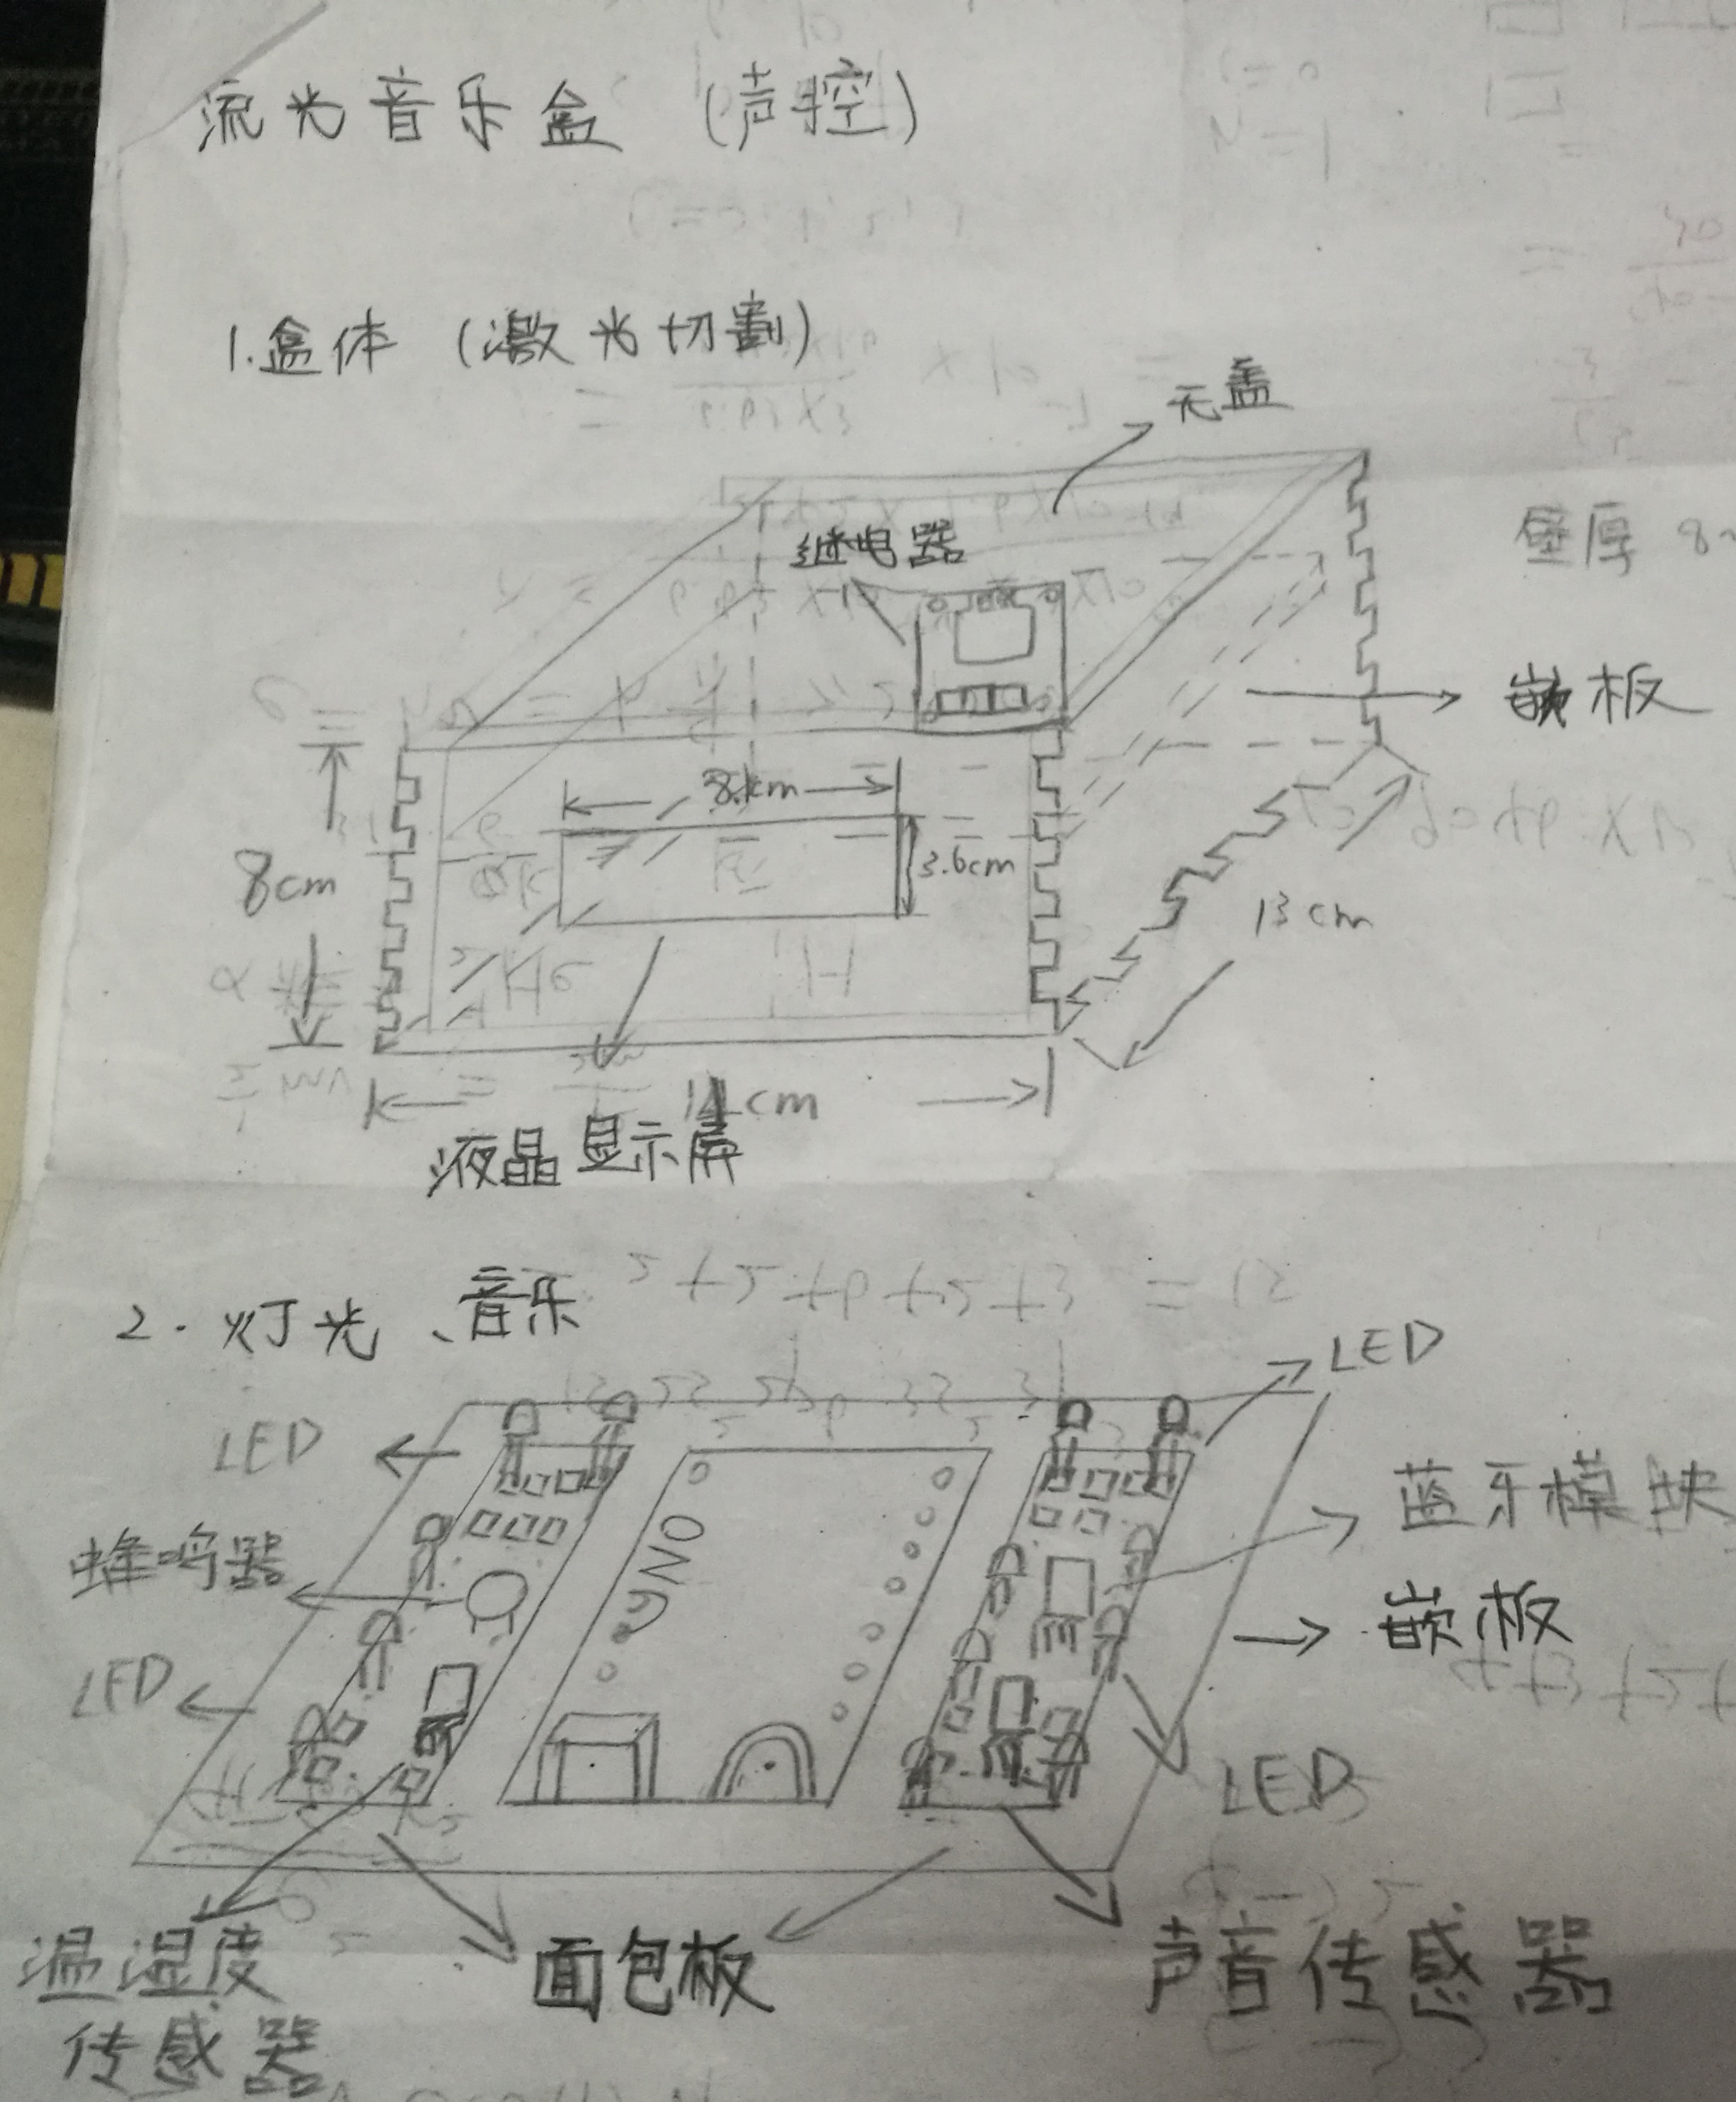 流光音乐盒 (声控)
1.盒体 (激光切割)
无盖
继电器
壁厚 8
嵌板
8cm
3.6cm
13cm
14cm
液晶显示屏
2. 灯光、音乐
LED
LED
蓝牙模块
蜂鸣器
UNO
嵌板
LED
LED
温湿度
传感器
面包板
声音传感器